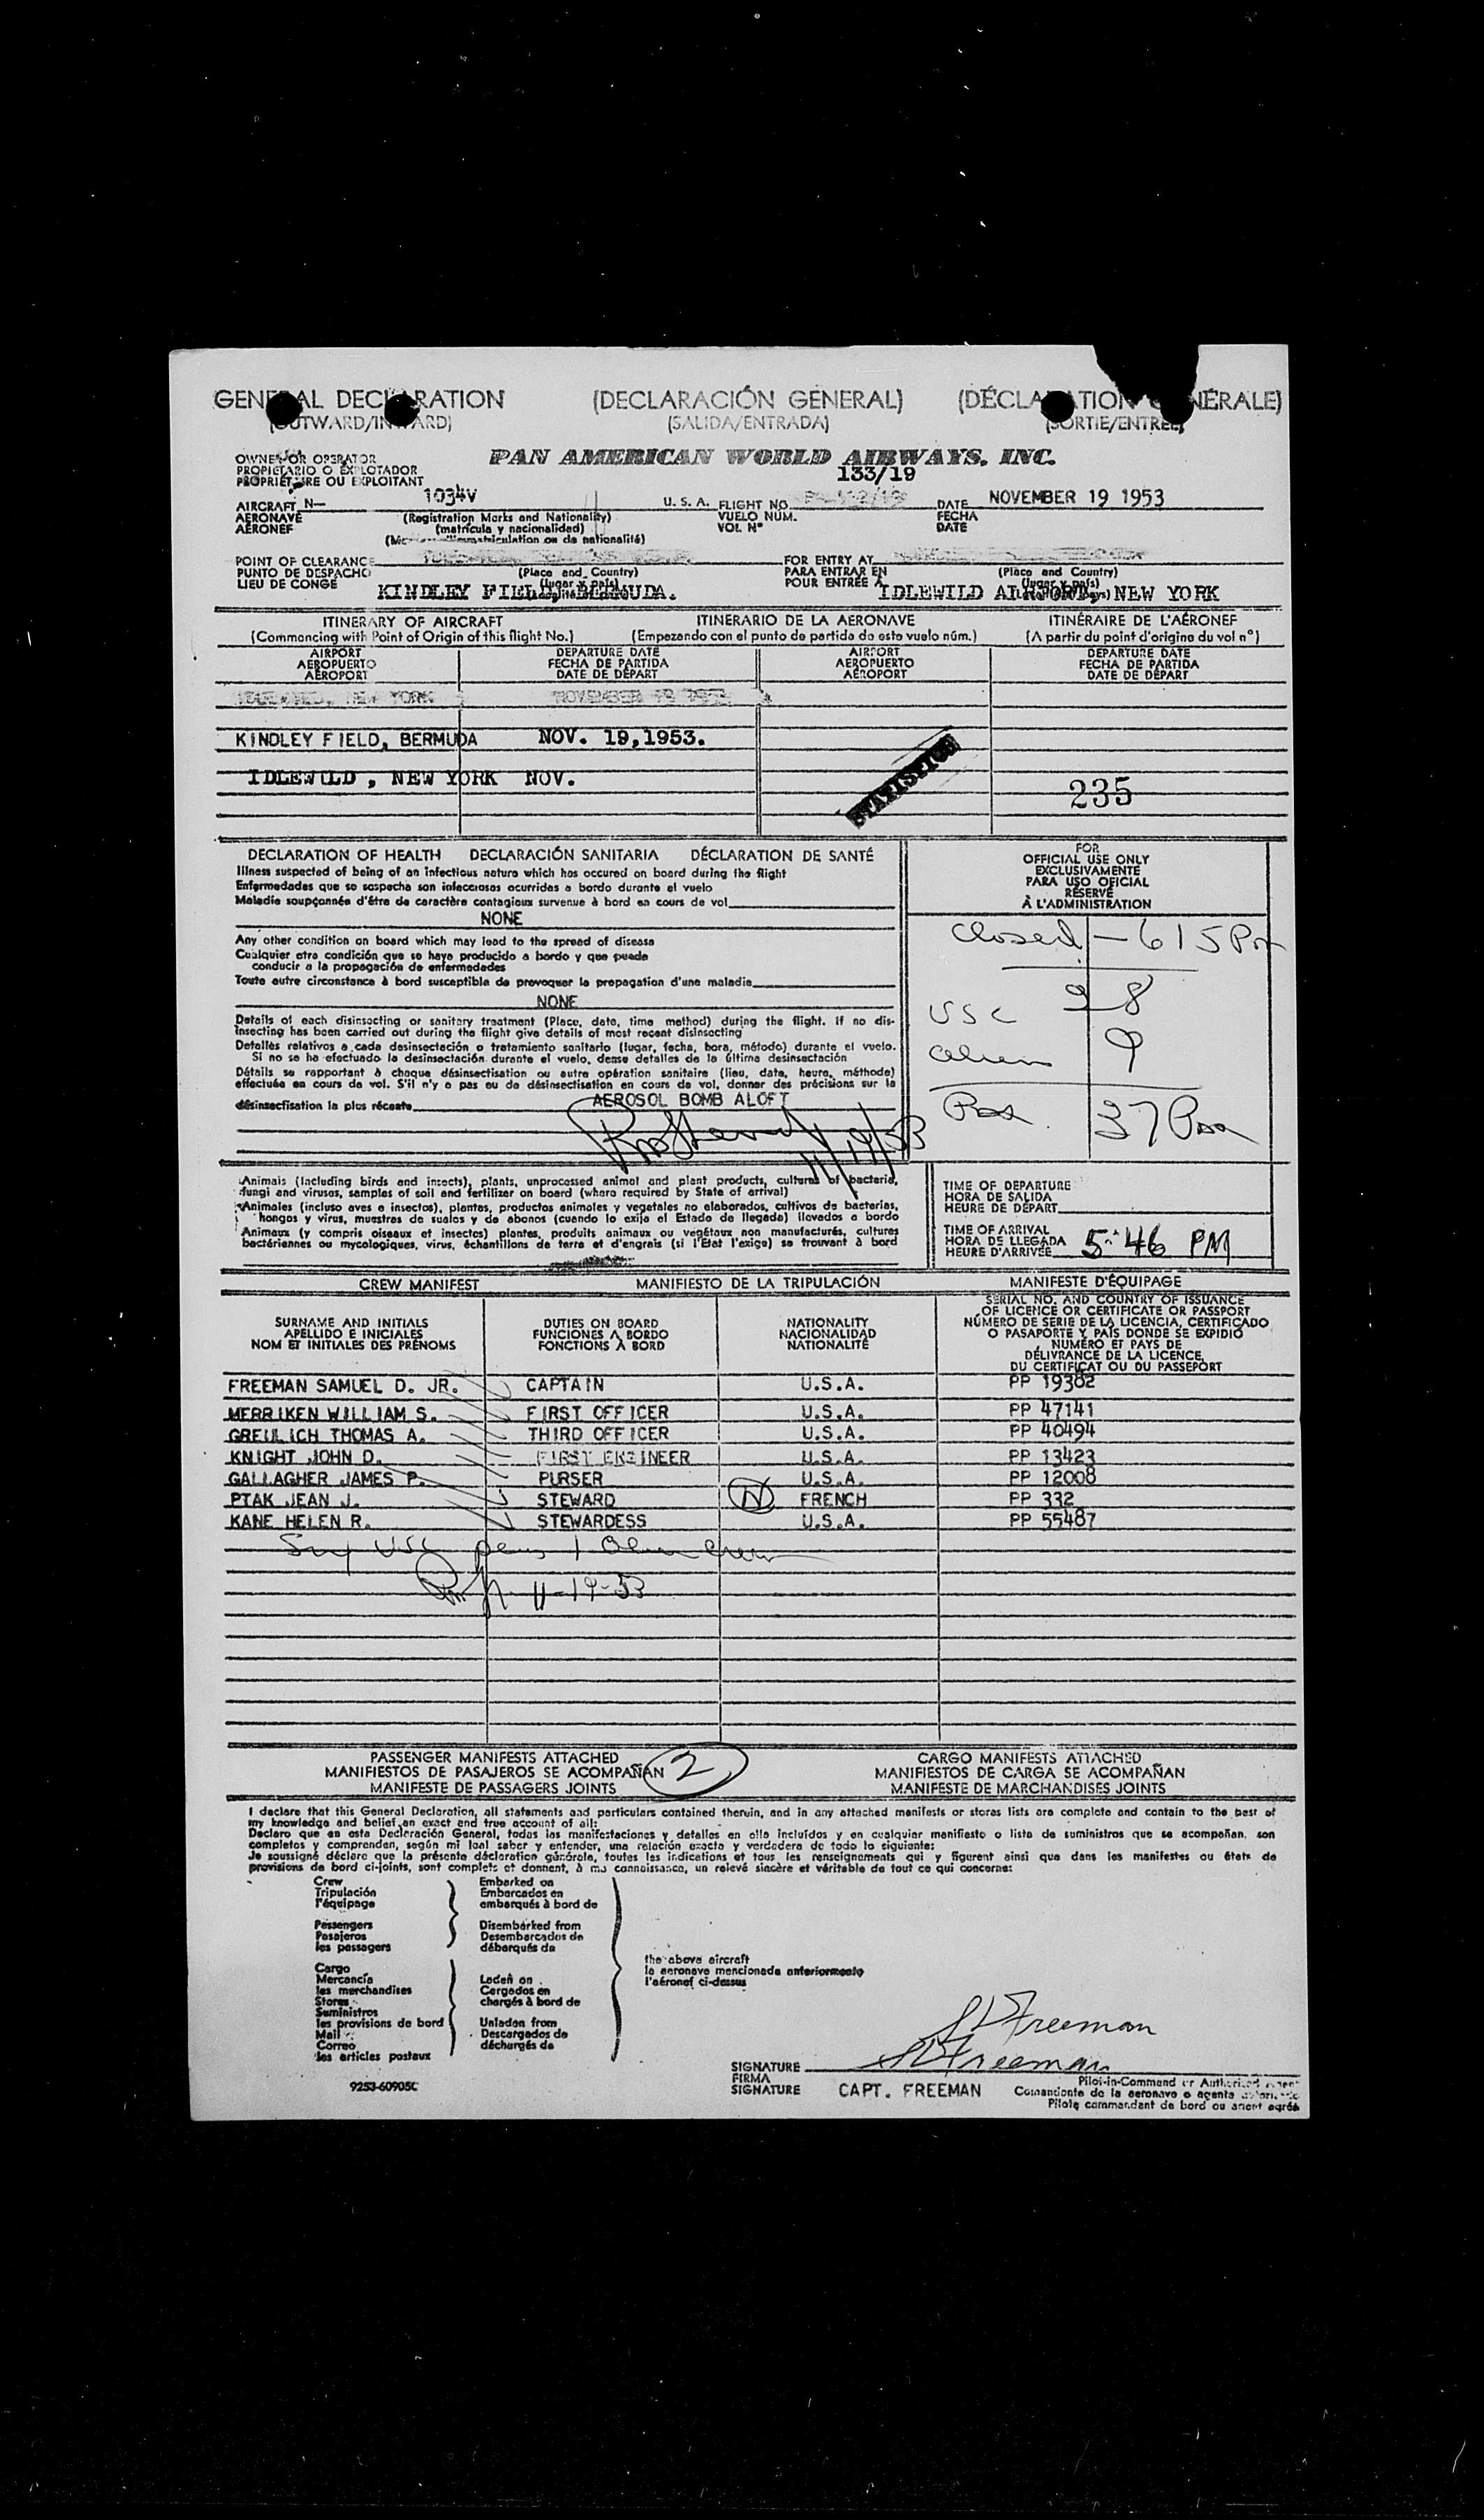 GENERAL DECLARATION (DECLARACIÓN GENERAL) (DÉCLARATION GÉNÉRALE)
(OUTWARD/INWARD) (SALIDA/ENTRADA) (SORTIE/ENTRÉE)
OWNER OR OPERATOR PAN AMERICAN WORLD AIRWAYS, INC.
PROPIETARIO O EXPLOTADOR 133/19
PROPRIÉTAIRE OU EXPLOITANT
AIRCRAFT N— 1034V U. S. A. FLIGHT NO. DATE NOVEMBER 19 1953
AERONAVE (Registration Marks and Nationality) VUELO NÚM. FECHA
AÉRONEF (matrícula y nacionalidad) VOL Nº DATE
d'immatriculation ou de nationalité)
POINT OF CLEARANCE FOR ENTRY AT
PUNTO DE DESPACHO (Place and Country) PARA ENTRAR EN (Place and Country)
LIEU DE CONGÉ (lugar y país) POUR ENTRÉE À (lugar y país)
KINDLEY FIELD, BERMUDA. IDLEWILD AIRPORT, NEW YORK
ITINERARY OF AIRCRAFT ITINERARIO DE LA AERONAVE ITINÉRAIRE DE L'AÉRONEF
(Commencing with Point of Origin of this flight No.) (Empezando con el punto de partida de este vuelo núm.) (A partir du point d'origine du vol nº)
AIRPORT DEPARTURE DATE AIRPORT DEPARTURE DATE
AEROPUERTO FECHA DE PARTIDA AEROPUERTO FECHA DE PARTIDA
AÉROPORT DATE DE DÉPART AÉROPORT DATE DE DÉPART
IDLEWILD, NEW YORK NOVEMBER 19 1953
KINDLEY FIELD, BERMUDA NOV. 19,1953.
STATISTICS
IDLEWILD , NEW YORK NOV.
235
DECLARATION OF HEALTH DECLARACIÓN SANITARIA DÉCLARATION DE SANTÉ
Illness suspected of being of an infectious nature which has occured on board during the flight
Enfermedades que se sospecha son infecciosas ocurridas a bordo durante el vuelo
Maladie soupçonnée d'être de caractère contagieux survenue à bord en cours de vol
NONE
Any other condition on board which may lead to the spread of disease
Cualquier otra condición que se haya producido a bordo y que puede
conducir a la propagación de enfermedades
Toute autre circonstance à bord susceptible de provoquer la propagation d'une maladie
NONE
Details of each disinsecting or sanitary treatment (Place, date, time method) during the flight. If no dis-
insecting has been carried out during the flight give details of most recent disinsecting
Detalles relativos a cada desinsectación o tratamiento sanitario (lugar, fecha, hora, método) durante el vuelo.
Si no se ha efectuado la desinsectación durante el vuelo, dense detalles de la última desinsectación
Détails se rapportant à chaque désinsectisation ou autre opération sanitaire (lieu, date, heure, méthode)
effectuée en cours de vol. S'il n'y a pas eu de désinsectisation en cours de vol, donner des précisions sur la
désinsectisation la plus récente AEROSOL BOMB ALOFT
11/19/53
FOR
OFFICIAL USE ONLY
EXCLUSIVAMENTE
PARA USO OFICIAL
RÉSERVÉ
À L'ADMINISTRATION
Closed — 615 Pm
USC 28
Alien 9
Pax 37 Pax
Animals (Including birds and insects), plants, unprocessed animal and plant products, cultures of bacteria,
fungi and viruses, samples of soil and fertilizer on board (where required by State of arrival)
Animales (incluso aves e insectos), plantas, productos animales y vegetales no elaborados, cultivos de bacterias,
hongos y virus, muestras de suelos y de abonos (cuando lo exija el Estado de llegada) llevados a bordo
Animaux (y compris oiseaux et insectes) plantes, produits animaux ou végétaux non manufacturés, cultures
bactériennes ou mycologiques, virus, échantillons de terre et d'engrais (si l'Etat l'exige) se trouvant à bord
TIME OF DEPARTURE
HORA DE SALIDA
HEURE DE DÉPART
TIME OF ARRIVAL
HORA DE LLEGADA
HEURE D'ARRIVÉE 5:46 PM
CREW MANIFEST MANIFIESTO DE LA TRIPULACIÓN MANIFESTE D'ÉQUIPAGE
SURNAME AND INITIALS
APELLIDO E INICIALES
NOM ET INITIALES DES PRÉNOMS
DUTIES ON BOARD
FUNCIONES A BORDO
FONCTIONS À BORD
NATIONALITY
NACIONALIDAD
NATIONALITÉ
SERIAL NO. AND COUNTRY OF ISSUANCE
OF LICENCE OR CERTIFICATE OR PASSPORT
NÚMERO DE SERIE DE LA LICENCIA, CERTIFICADO
O PASAPORTE Y PAÍS DONDE SE EXPIDIÓ
NUMÉRO ET PAYS DE
DÉLIVRANCE DE LA LICENCE,
DU CERTIFICAT OU DU PASSEPORT
FREEMAN SAMUEL D. JR. CAPTAIN U.S.A. PP 19382
MERRIKEN WILLIAM S. FIRST OFFICER U.S.A. PP 47141
GREULICH THOMAS A. THIRD OFFICER U.S.A. PP 40494
KNIGHT JOHN D. FIRST ENGINEER U.S.A. PP 13423
GALLAGHER JAMES P. PURSER U.S.A. PP 12008
PTAK JEAN J. STEWARD N FRENCH PP 332
KANE HELEN R. STEWARDESS U.S.A. PP 55487
USC plus 1 Alien crew
11-19-53
PASSENGER MANIFESTS ATTACHED CARGO MANIFESTS ATTACHED
MANIFIESTOS DE PASAJEROS SE ACOMPAÑAN 2 MANIFIESTOS DE CARGA SE ACOMPAÑAN
MANIFESTE DE PASSAGERS JOINTS MANIFESTE DE MARCHANDISES JOINTS
I declare that this General Declaration, all statements and particulars contained therein, and in any attached manifests or stores lists are complete and contain to the best of
my knowledge and belief an exact and true account of all:
Declaro que en esta Declaración General, todas las manifestaciones y detalles en ella incluídos y en cualquier manifiesto o lista de suministros que se acompañan, son
completos y comprenden, según mi leal saber y entender, una relación exacta y verdadera de todo lo siguiente:
Je soussigné déclare que la présente déclaration générale, toutes les indications et tous les renseignements qui y figurent ainsi que dans les manifestes ou états de
provisions de bord ci-joints, sont complets et donnent, à ma connaissance, un relevé sincère et véritable de tout ce qui concerne:
Crew Embarked on
Tripulación Embarcados en
l'équipage embarqués à bord de
Passengers Disembarked from
Pasajeros Desembarcados de
les passagers débarqués de
the above aircraft
la aeronave mencionada anteriormente
l'aéronef ci-dessus
Cargo
Mercancía Laden on
les marchandises Cargados en
Stores chargés à bord de
Suministros
les provisions de bord Unladen from
Mail Descargados de
Correo déchargés de
les articles postaux
SDFreeman
SIGNATURE SDFreeman
FIRMA Pilot-in-Command or Authorized Agent
SIGNATURE CAPT. FREEMAN Comandante de la aeronave o agente autorizado
Pilote commandant de bord ou agent agréé
9253-60905C